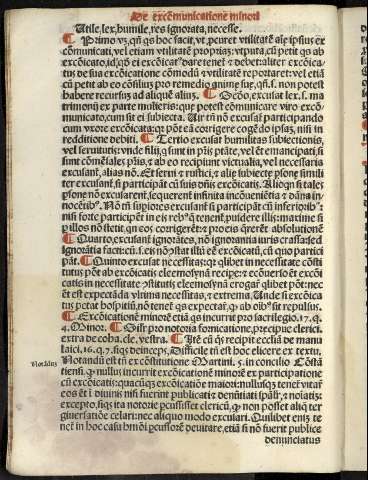 De excōmunicatione minori
Utile, lex, humile, res ignorata, necesse.
¶ Primo vʒ, qñ qs hoc facit, vt peuret vtilitatē alẽ ipsius ex
cōmunicati, vel etiam vtilitatē propriaʒ: vtputa, cū petit qs ab
excōicato, id, qđ ei excōicat' dare tenet & debet: aliter excōica-
tus de sua excōicatione cōmodū & vtilitatē reportaret: vel etiā
cū petit ab eo cōsiliuʒ pro remedio anime sue, qñ. s. non potest
habere recursuʒ ad aliquē alium. ¶ Secūdo, excusat lex. s. ma
trimonij ex parte mulieris: que potest cōmunicare viro excō-
municato, cum sit ei subiecta. Uir tñ nō excusat participando
cum vxore excōicata: qʒ potē eā corrigere cogēdo ipsaʒ, nisi in
redditione debiti. ¶ Tertio excusat humilitas subiectionis,
vel seruitutis: vnde filij, q sunt in ptāte prātę, vel ēt emancipati, si
sunt cōmēsales pris, & ab eo recipiunt victualia, vel necessaria
excusant, alias nō. Et serui & rustici, & alię subiecte psone simili
ter excusant, si participāt cū suis dñis excōicatis. Alioqn si tales
psone nō excusarent, sequerent infinita incōuenientia & dāna in
nocētib'. Nō tñ supiores excusant si participāt cū inferiorib':
nisi forte participēt in eis rebus q tenent, puidere illis: maxime si
p illos nō stetit, qn eos corrigerēt: & pro eis qrerēt absolutionē
¶ Quarto, excusant ignorātes, nō ignorantia iuris crassa: sed
ignorātia facti: cū. s. eis nō ꝯstat illū eē excōicatū, cū quo partici
pāt. ¶ Quinto excusat necessitas: qʒ qlibet in necessitate cōsti
tutus pōt ab excōicatis eleemosynā recipe: & ecōuerso & excōi
catis in necessitate ꝯstitutis eleemosynā erogari qlibet pōt: nec
ēt est expectāda vltima necessitas, & extrema. Unde si excōica
tus petat hospitiū, nō tenet qs expectare, qʒ ab oīb' sit repulsus.
¶ Excōicationē minorē etiā qs incurrit pro sacrilegio. 17. q.
4. Omnor. ¶ Silr pro notoria fornicatione, precipue clerici.
extra de coha. cle. vestra. ¶ Itē cū qs recipit ecclīā de manu
laici. 16. q. 7. siqs deinceps, Difficile tñ est hoc elicere ex textu.
Notandus
Notandū est tñ ex cōstitutione Martini. 5. in concilio Cōstā
tiensi. qđ nullus incurrit excōicationē minorē ex participatione
cū excōicatis: quacūqʒ excōicatiōe maiori: nullusqʒ tenet vitar̄
eos ēt ī diuinis nisi fuerint publicati: denūtiati spālr, & noīatiʒ:
excepto, siqs ita notorie pcussisset clericū, qđ non posset aliq ter
giuersatiōe celari: nec aliquo modo excusari. Quilibet enim te-
net in hoc casu hmōi pcussorē deuitare, etiā si nō fuerit publice
denunciatus